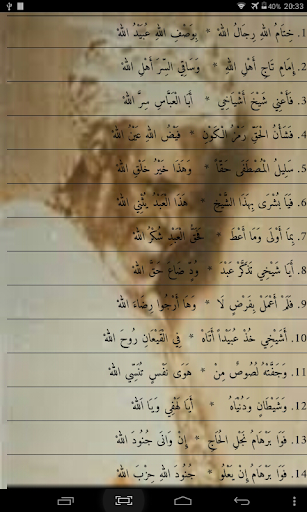 20:33
1. خِتَامُ اللهِ رِجَالُ اللهْ * بِوَصْفِ اللهِ عَبِيدُ اللهْ
2. إِمَامٍ تَاجِ أَهْلِ اللهِ * وَسَاقِي السِّرِّ أَهْلَ اللهْ
3. فَأَعْنِي شَيْخَ أَشْيَاخِي * أَبَا العَبَّاسِ سِرَّ اللهْ
4. فَشَأْنُ الْحَقِّ رَمْزُ الْكَوْنِ * فَيْضُ اللهِ عَيْنُ اللهْ
5. سَلِيلُ الْمُصْطَفَى حَقّاً * وَهَذَا خَيْرُ خَلْقِ اللهْ
6. فَيَا بُشْرَى بِهَذَا الشَّيْخِ * هَذَا الْعَبْدُ يُثْنِي اللهْ
7. بِمَا أَوْلَى وَمَا أَعْطَ * لَحَقُّ الْعَبْدِ شُكْرُ اللهْ
8. أَيَا شَيْخِي تَذَكَّرْ عَبْدَ * وُدٍّ ضَاعَ حَقَّ اللهْ
9. فَلَمْ أَعْمَلْ بِفَرْضٍ لَا * وَهَا أَرْجُوا رِضَاءَ اللهْ
10. أَشَيْخِي خُذْ عُبَيْداً أَتَاهْ * فِي القَيْعَانِ رُوحَ اللهْ
11. وَحَفَّتْهُ لُصُوصٌ مِنْ * هَوَى نَفْسٍ تُنَسِّي اللهْ
12. وَشَيْطَانٍ وَدُنْيَاهُ * أَيَا لَهْفِي وَيَا اَللهْ
13. فَوَا بَرْهَامُ نَجْلَ الْحَاجِّ * إِنْ وَانَى جُنُودَ اللهْ
14. فَوَا بَرْهَامُ إِنْ يَعْلُو * جُنُودَ اللهِ حِزْبَ اللهْ